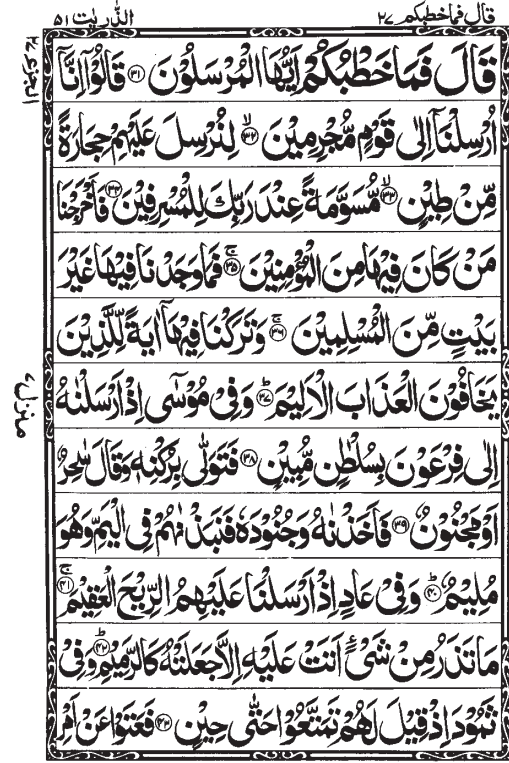 قال فما خطبكم ٢٧ الذّٰريٰت ٥١
قَالَ فَمَا خَطْبُكُمْ اَيُّهَا الْمُرْسَلُوْنَ ﴿۳۱﴾ قَالُوْۤا اِنَّاۤ
اُرْسِلْنَاۤ اِلٰى قَوْمٍ مُّجْرِمِيْنَ ﴿۳۲﴾ۙ لِنُرْسِلَ عَلَيْهِمْ حِجَارَةً
مِّنْ طِيْنٍ ﴿۳۳﴾ۙ مُّسَوَّمَةً عِنْدَ رَبِّكَ لِلْمُسْرِفِيْنَ ﴿۳۴﴾ فَاَخْرَجْنَا
مَنْ كَانَ فِيْهَا مِنَ الْمُؤْمِنِيْنَ ﴿۳۵﴾ۚ فَمَا وَجَدْنَا فِيْهَا غَيْرَ
بَيْتٍ مِّنَ الْمُسْلِمِيْنَ ﴿۳۶﴾ۚ وَتَرَكْنَا فِيْهَاۤ اٰيَةً لِّلَّذِيْنَ
يَخَافُوْنَ الْعَذَابَ الْاَلِيْمَ ﴿۳۷﴾ؕ وَفِيْ مُوْسٰۤى اِذْ اَرْسَلْنٰهُ
اِلٰى فِرْعَوْنَ بِسُلْطٰنٍ مُّبِيْنٍ ﴿۳۸﴾ فَتَوَلّٰى بِرُكْنِهٖ وَقَالَ سٰحِرٌ
اَوْ مَجْنُوْنٌ ﴿۳۹﴾ فَاَخَذْنٰهُ وَجُنُوْدَهٗ فَنَبَذْنٰهُمْ فِي الْيَمِّ وَهُوَ
مُلِيْمٌ ﴿۴۰﴾ؕ وَفِيْ عَادٍ اِذْ اَرْسَلْنَا عَلَيْهِمُ الرِّيْحَ الْعَقِيْمَ ﴿۴۱﴾ۚ
مَا تَذَرُ مِنْ شَيْءٍ اَتَتْ عَلَيْهِ اِلَّا جَعَلَتْهُ كَالرَّمِيْمِ ﴿۴۲﴾ؕ وَفِيْ
ثَمُوْدَ اِذْ قِيْلَ لَهُمْ تَمَتَّعُوْا حَتّٰى حِيْنٍ ﴿۴۳﴾ فَعَتَوْا عَنْ اَمْرِ
منزل ٧